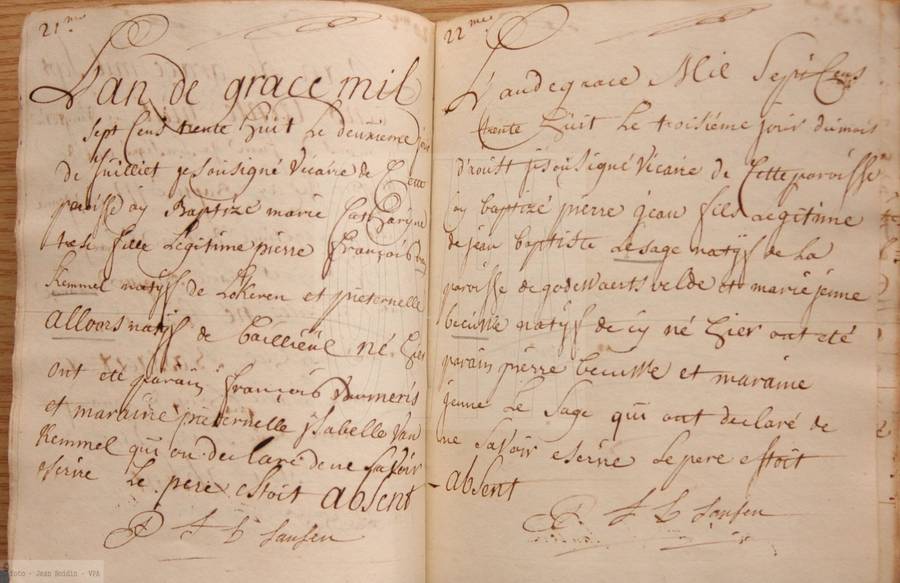 21me
L'an de grace mil
sept Cens trente huit le deuxieme jour
de Juilliet je sousigné vicaire de Cette
paroisse ay Baptizé marie Catharine
fille Legitime pierre François van
Kemmel natyf de Lokeren et pieternelle
alloors natyf de Baillieul né hier
ont été parain François Dumeris
et maraine pieternelle ysabelle van
Kemmel qui on declaré de ne savoir
escrire le pere estoit absent
22me
L'an de grace Mil Sept Cens
trente huit le troisiéme jour du mois
d'aoust je sousigné vicaire de Cette paroisse
ay baptizé pierre jean fils Legitime
de jean baptiste Le sage natyf de la
paroisse de godewaertsvelde et marie jenne
becuwe natyf de icy né hier ont été
parain pierre becuwe et maraine
jenne Le Sage qui ont declaré de
ne savoir escrire le pere estoit
absent
foto - Jean Heidin - VPA